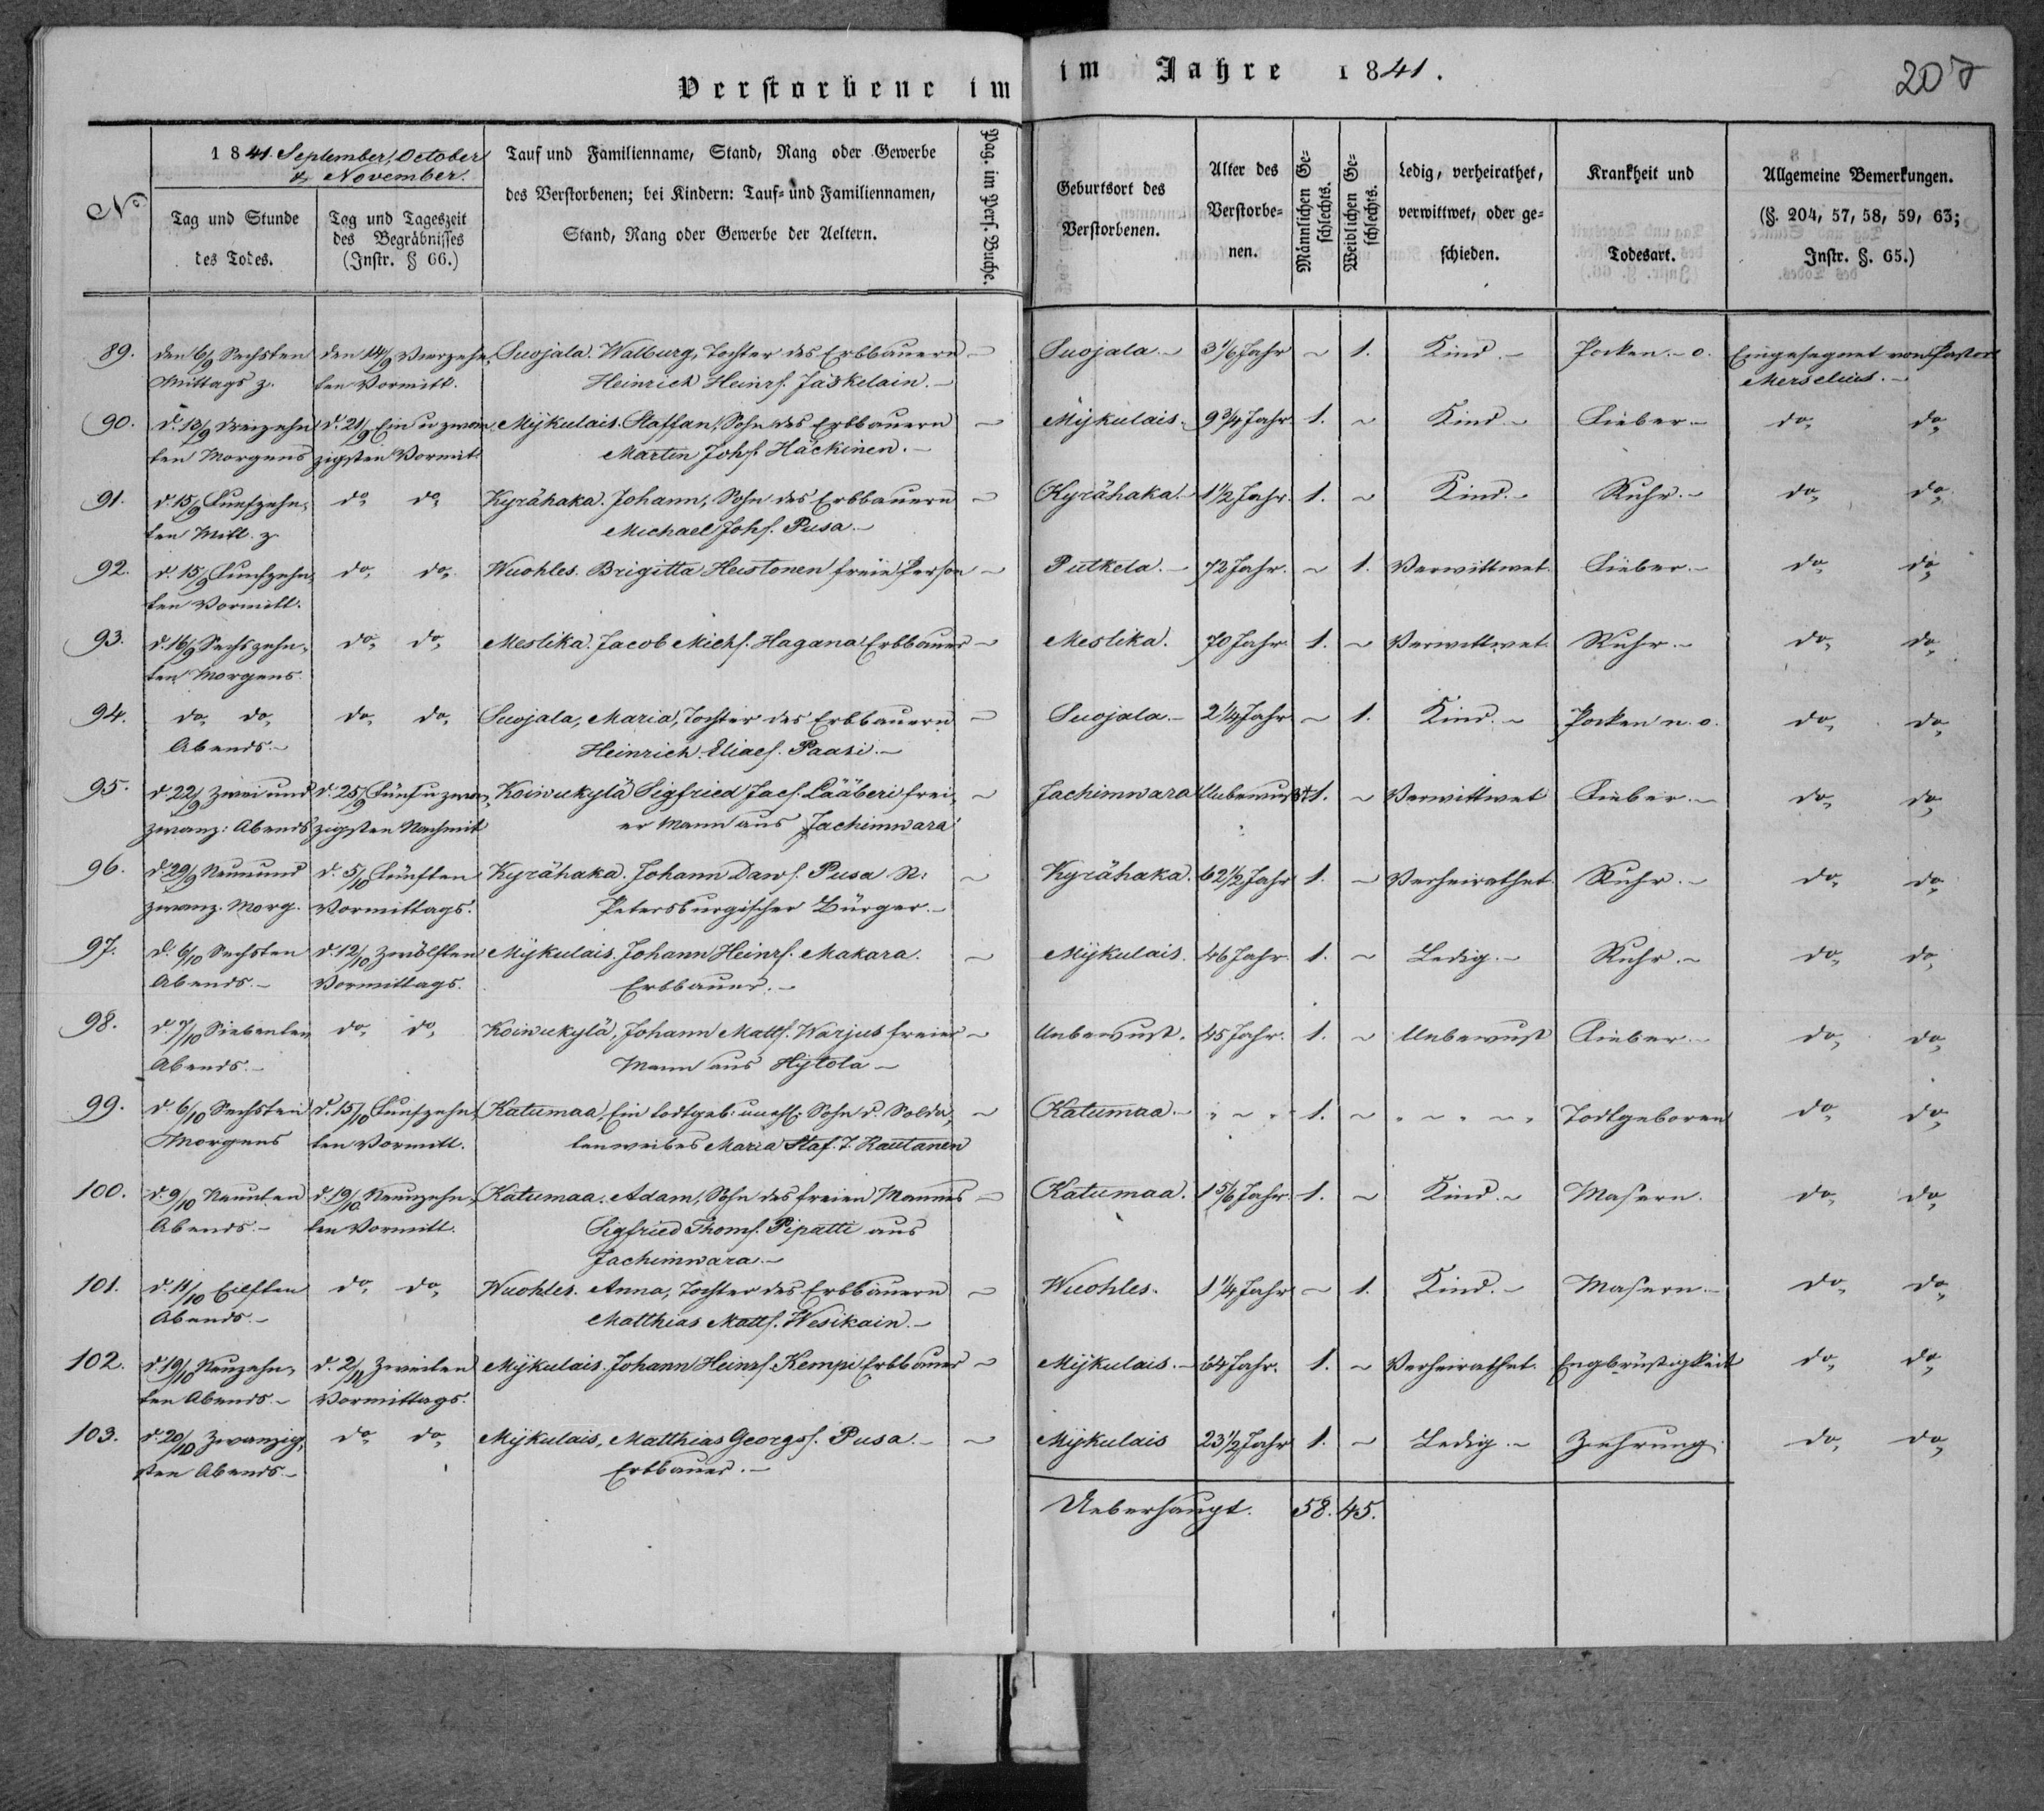 Verstorbene im
im Jahre 1841.
207
No
1841. September, October
& November.
Tag und Stunde
des Todes.
Tag und Tageszeit
des Begräbnisses
(Instr. § 66.)
Tauf und Familienname, Stand, Rang oder Gewerbe
des Verstorbenen; bei Kindern: Tauf- und Familiennamen,
Stand, Rang oder Gewerbe der Aeltern.
Pag. im Pers. Buche.
Geburtsort des
Verstorbenen.
Alter des
Verstorbe-
nen.
Männlichen Ge-
schlechts.
Weiblichen Ge-
schlechts.
Ledig, verheirathet,
verwittwet, oder ge-
schieden.
Krankheit und
Todesart.
Allgemeine Bemerkungen.
(§. 204, 57, 58, 59, 63;
Instr. §. 65.)
89. den 6/9 Sechsten den 14/9 Vierzehn, Suojala. Walburg, Tochter des Erbbauern – Suojala. – 3 1/6 Jahr ~ 1. Kind. – Pocken. – o. Eingesegnet von Pastor
Mittags z. ten Vormitt. Heinrich Heinrs. Jäskelain. – Merselius. –
90. d. 13/9 Dreizehn d. 21/9 Ein u zwan, Mÿkulais. Staffan, Sohn des Erbbauern – Mÿkulais. 9 3/4 Jahr. 1. ~ Kind. – Fieber. – do, do,
ten Morgens zigsten Vormit. Martin Johs. Häckinen. –
91. d. 15/9 Funfzehn, do, do, Kyrähaka. Johann, Sohn des Erbbauern – Kyrähaka. – 1 1/2 Jahr. 1. ~ Kind. – Ruhr. – do, do,
ten Mitt. z. Michael Johs. Pusa. –
92. d. 15/9 Funfzehn, do, do, Wuohles. Brigitta Heustonen freie Person – Putkela. – 72 Jahr. ~ 1. Verwittwet. Fieber. – do, do,
ten Vormitt.
93. d. 16/9 Sechszehn, do, do, Meslika. Jacob Michs. Hagana Erbbauer – Meslika. 70 Jahr. 1. ~ Verwittwet. Ruhr. – do, do,
ten Morgens.
94. do, do, do, do, Suojala, Maria, Tochter des Erbbauern – Suojala. – 2 1/4 Jahr ~ 1. Kind. – Pocken n. o. do, do,
Abends. – Heinrich Eliaes. Paasi. –
95. d. 22/9 Zwei und d. 25/9 Fünf u zwan, Koiwukylä Sigfried Jacs. Lääberi frei, ~ Jachimwara Unbewust 1. ~ Verwittwet Fieber. – do, do,
zwanz: Abends zigsten Nachmit er Mann aus Jachimwara
96. d. 29/9 Neun und d. 5/10 Fünften Kyrähaka. Johann Daws. Pusa St: ~ Kyrähaka. 62 1/2 Jahr 1. ~ Verheirathet. Ruhr. – do, do,
zwanz. Morg. Vormittags. Petersburgischer Bürger. –
97. d. 6/10 Sechsten d. 12/10 Zwölften Mÿkulais. Johann Heinrs. Makara. ~ Mÿkulais. 46 Jahr. 1. ~ Ledig. – Ruhr. – do, do,
Abends. – Vormittags. Erbbauer. –
98. d. 7/10 Siebenten do, do, Koiwukylä, Johann Matts. Warjus freier – Unbewust. 45 Jahr. 1. ~ Unbewust Fieber. – do, do,
Abends. – Mann aus Hÿtola –
99. d. 6/10 Sechsten d. 15/10 Funfzehn, Katumaa, Ein todtgeb: unehl. Sohn d. Solda, ~ Katumaa. – 1. ~ Todtgeboren do, do,
Morgens ten Vormitt. tenweibes Maria Staf. T. Rautanen
100. d. 9/10 Neunten d. 19/10 Neunzehn, Katumaa. Adam, Sohn des freien Mannes – Katumaa. 1 5/6 Jahr. 1. ~ Kind. – Masern. do, do,
Abends. – ten Vormitt. Sigfried Thoms. Pipatti aus
Jachimwara. –
101. d. 11/10 Eilften do, do, Wuohles. Anna, Tochter des Erbbauern – Wuohles. 1 1/4 Jahr ~ 1. Kind. – Masern. – do, do,
Abends. – Matthias Matts. Wesikain. –
102. d. 19/10 Neunzehn, d. 2/11 Zweiten Mÿkulais. Johann Heinrs. Kempi Erbbauer – Mÿkulais. – 64 Jahr. 1. ~ Verheirathet. Engbrüstigkeit do, do,
ten Abends. – Vormittags.
103. d. 20/10 Zwanzig, do, do, Mÿkulais, Matthias Georgs. Pusa. – ~ Mÿkulais 23 1/2 Jahr 1. ~ Ledig. – Zehrung. do, do,
sten Abends. – Erbbauer. –
Ueberhaupt. 58. 45.